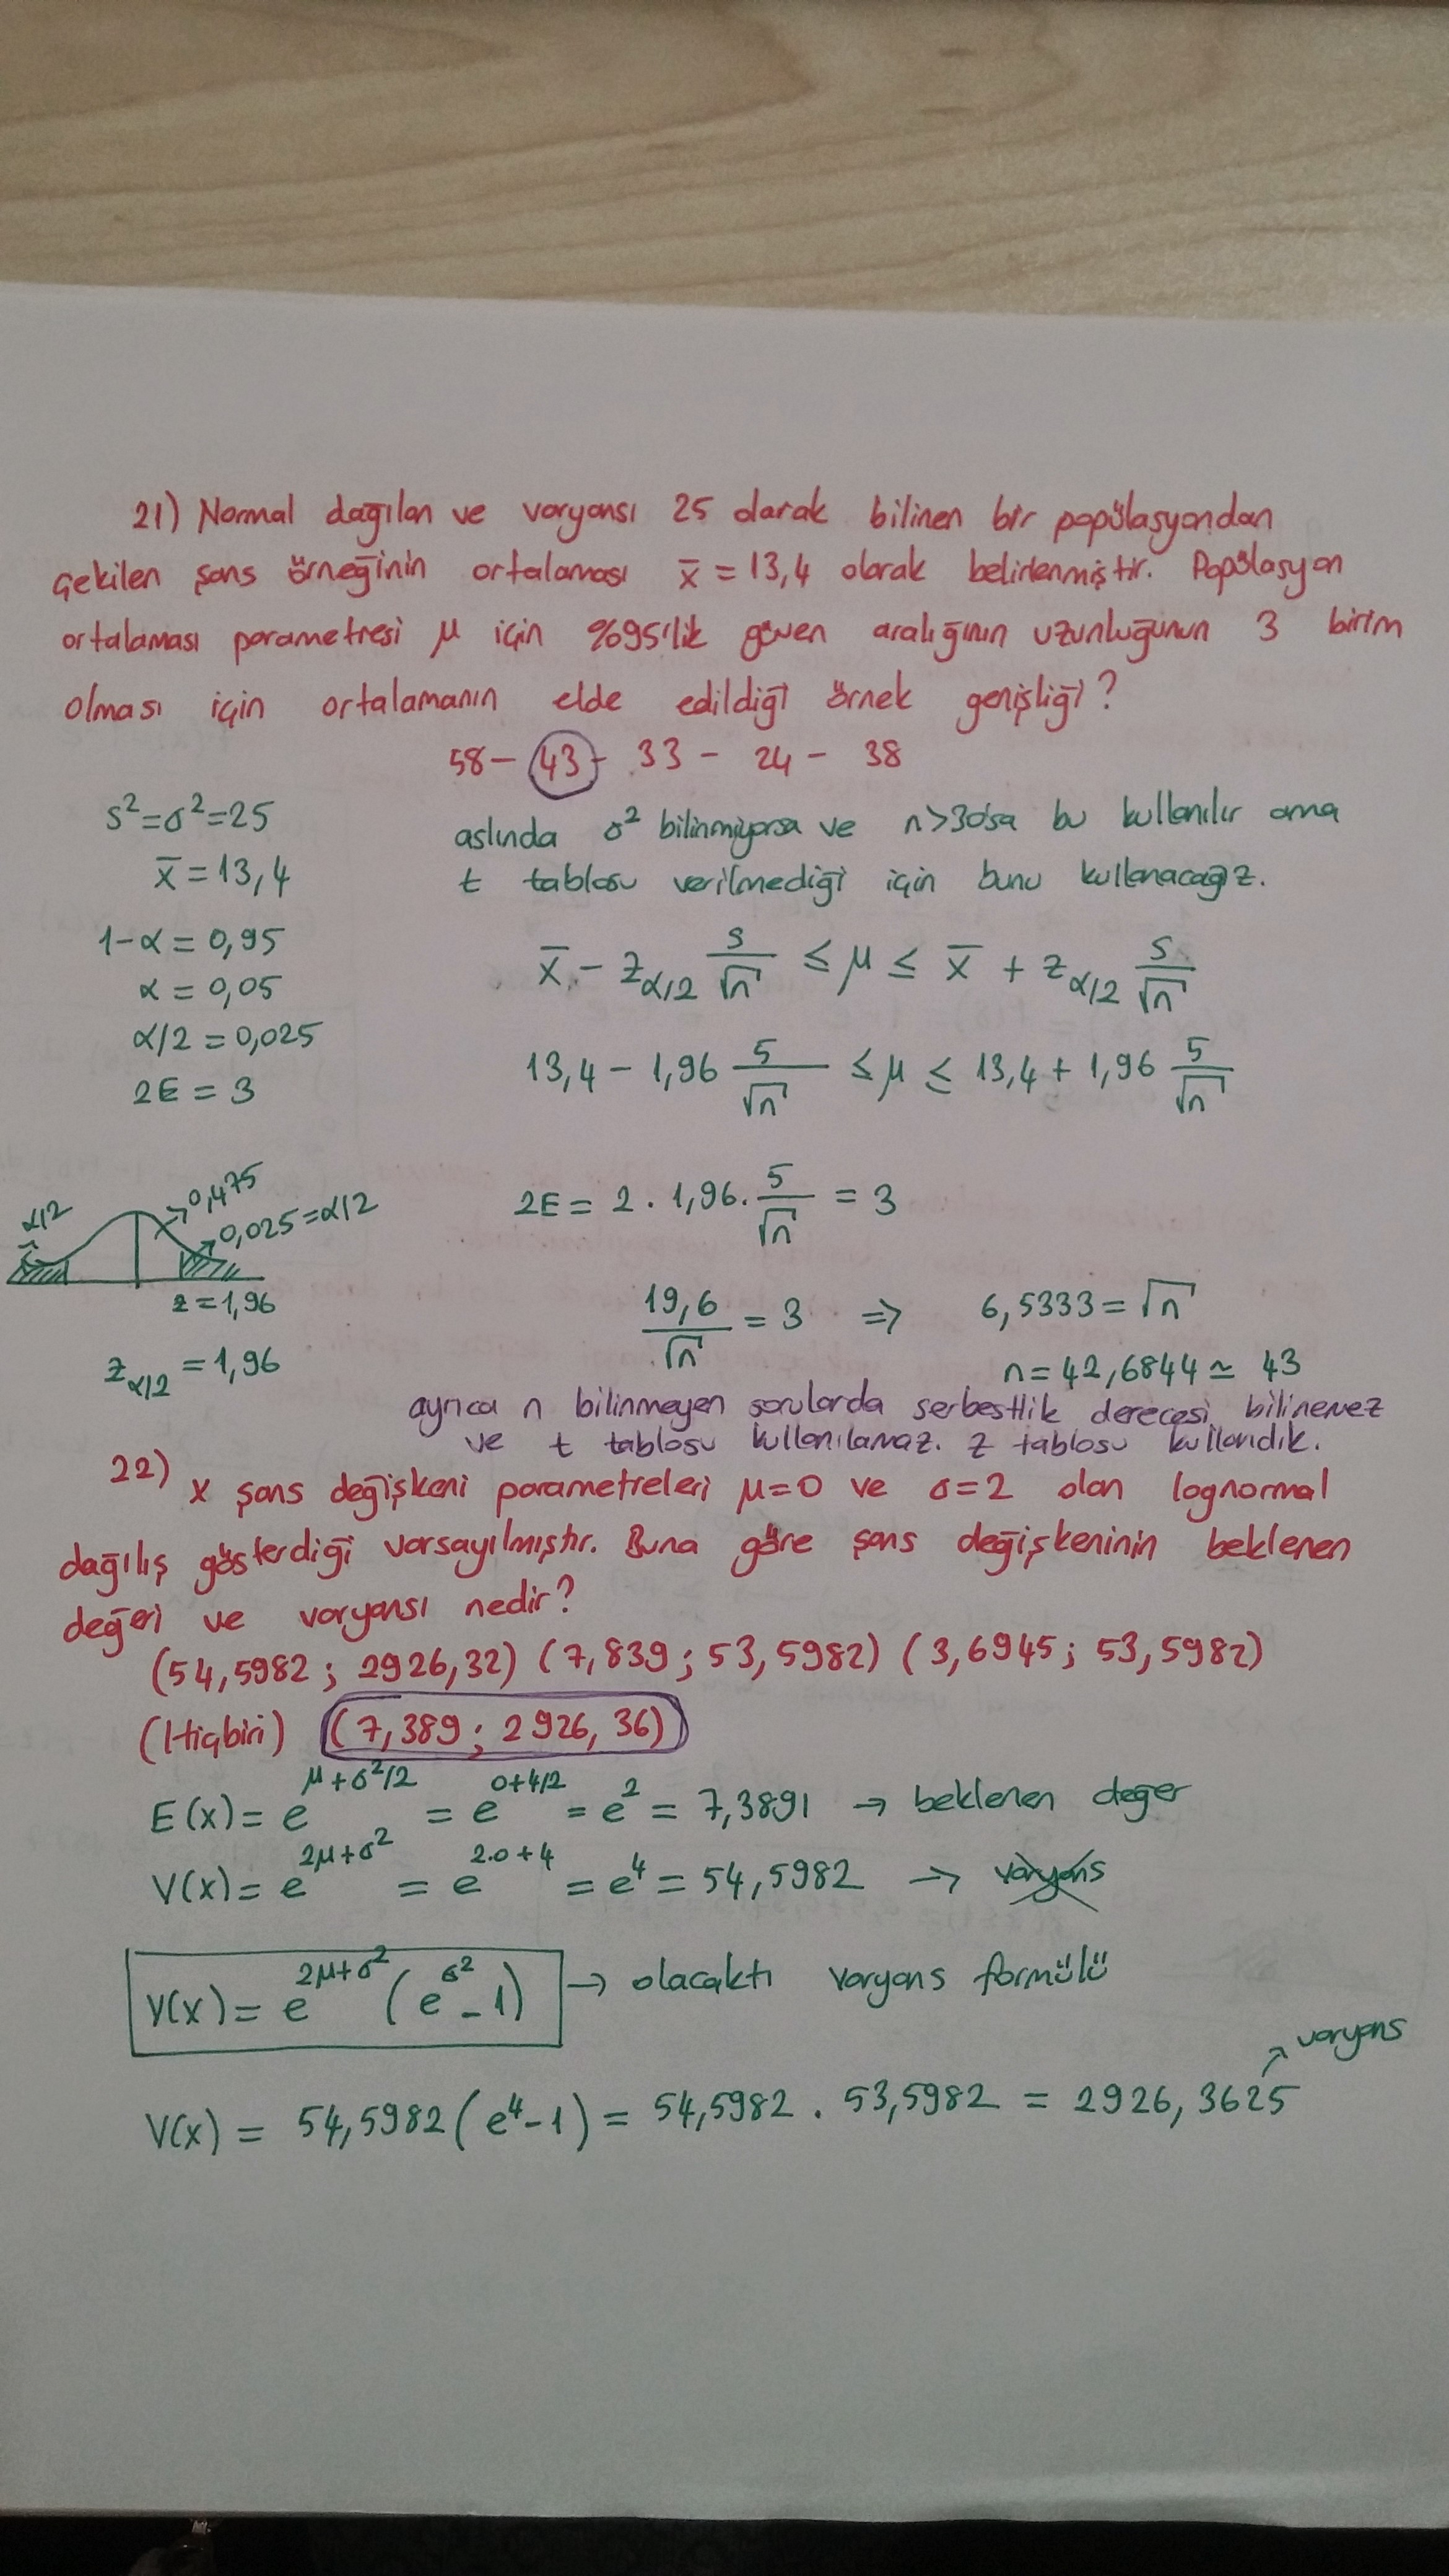 21) Normal dağılan ve varyansı 25 olarak bilinen bir popülasyondan
çekilen şans örneğinin ortalaması x̄ = 13,4 olarak belirlenmiştir. Popülasyon
ortalaması parametresi μ için %95'lik güven aralığının uzunluğunun 3 birim
olması için ortalamanın elde edildiği örnek genişliği?
58 - 43 - 33 - 24 - 38
s² = σ² = 25
x̄ = 13,4
1-α = 0,95
α = 0,05
α/2 = 0,025
2E = 3
aslında σ² bilinmiyorsa ve n>30'sa bu kullanılır ama
t tablosu verilmediği için bunu kullanacağız.
x̄ - z_α/2 s/√n ≤ μ ≤ x̄ + z_α/2 s/√n
13,4 - 1,96 5/√n ≤ μ ≤ 13,4 + 1,96 5/√n
α/2
0,475
0,025 = α/2
z = 1,96
z_α/2 = 1,96
2E = 2 . 1,96 . 5/√n = 3
19,6/√n = 3 ⇒ 6,5333 = √n
n = 42,6844 ≃ 43
ayrıca n bilinmeyen sorularda serbestlik derecesi bilinemez
ve t tablosu kullanılamaz. z tablosu kullandık.
22) x şans değişkeni parametreleri μ=0 ve σ=2 olan lognormal
dağılış gösterdiği varsayılmıştır. Buna göre şans değişkeninin beklenen
değeri ve varyansı nedir?
(54,5982 ; 2926,32) (7,839 ; 53,5982) (3,6945 ; 53,5982)
(Hiçbiri) (7,389 ; 2926,36)
E(x) = e^μ+σ²/2 = e^0+4/2 = e² = 7,3891 → beklenen değer
V(x) = e^2μ+σ² = e^2.0+4 = e⁴ = 54,5982 → varyans
V(x) = e^2μ+σ² (e^σ² - 1) → olacaktı varyans formülü
V(x) = 54,5982 (e⁴ - 1) = 54,5982 . 53,5982 = 2926,3625 → varyans